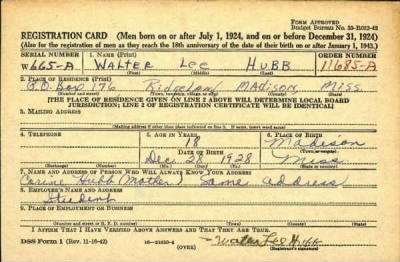 Form Approved
Budget Bureau No. 33-R012-42
REGISTRATION CARD (Men born on or after July 1, 1924, and on or before December 31, 1924)
(Also for the registration of men as they reach the 18th anniversary of the date of their birth on or after January 1, 1943.)
SERIAL NUMBER 1. NAME (Print) ORDER NUMBER
W665-A WALTER Lee HUBB 11685-A
(First) (Middle) (Last)
2. PLACE OF RESIDENCE (Print)
P.O. Box 76 Ridgeland Madison Miss.
(Number and street) (Town, township, village, or city) (County) (State)
[THE PLACE OF RESIDENCE GIVEN ON LINE 2 ABOVE WILL DETERMINE LOCAL BOARD
JURISDICTION; LINE 2 OF REGISTRATION CERTIFICATE WILL BE IDENTICAL]
3. MAILING ADDRESS
[Mailing address if other than place indicated on line 2. If same, insert word same]
4. TELEPHONE 5. AGE IN YEARS 6. PLACE OF BIRTH
18 Madison
DATE OF BIRTH (Town or county)
Dec 28 1928 Miss.
(Exchange) (Number) (Mo.) (Day) (Yr.) (State or country)
7. NAME AND ADDRESS OF PERSON WHO WILL ALWAYS KNOW YOUR ADDRESS
Corine Hubb (Mother) Same address
8. EMPLOYER'S NAME AND ADDRESS
Student
9. PLACE OF EMPLOYMENT OR BUSINESS
(Number and street or R. F. D. number) (Town) (County) (State)
I AFFIRM THAT I HAVE VERIFIED ABOVE ANSWERS AND THAT THEY ARE TRUE.
DSS Form 1 (Rev. 11-16-42) (OVER) Walter Lee Hubb
(Registrant's signature)